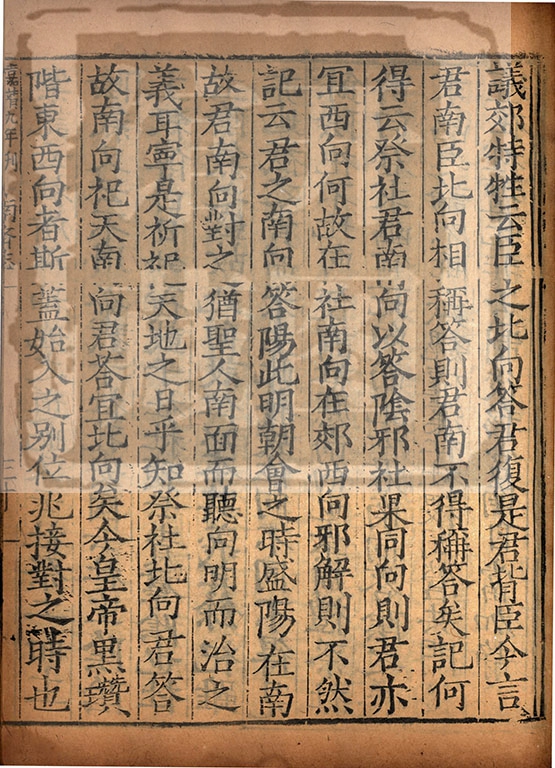 議郊特牲云臣之北向答君復是君背臣今言
君南臣北向相稱答則君南不得稱答矣記何
得云祭社君南向以答陰邪社果同向則君亦
宜西向何故在社南向在郊西向邪解則不然
記云君之南向答陽此明朝會之時盛陽在南
故君南向對之猶聖人南面而聽向明而治之
義耳寧是祈祀天地之日乎知祭社北向君答
故南向祀天南向君荅宜北向矣今皇帝黒瓚
階東西向者斯蓋始入之别位非接對之時也
嘉靖九年刊